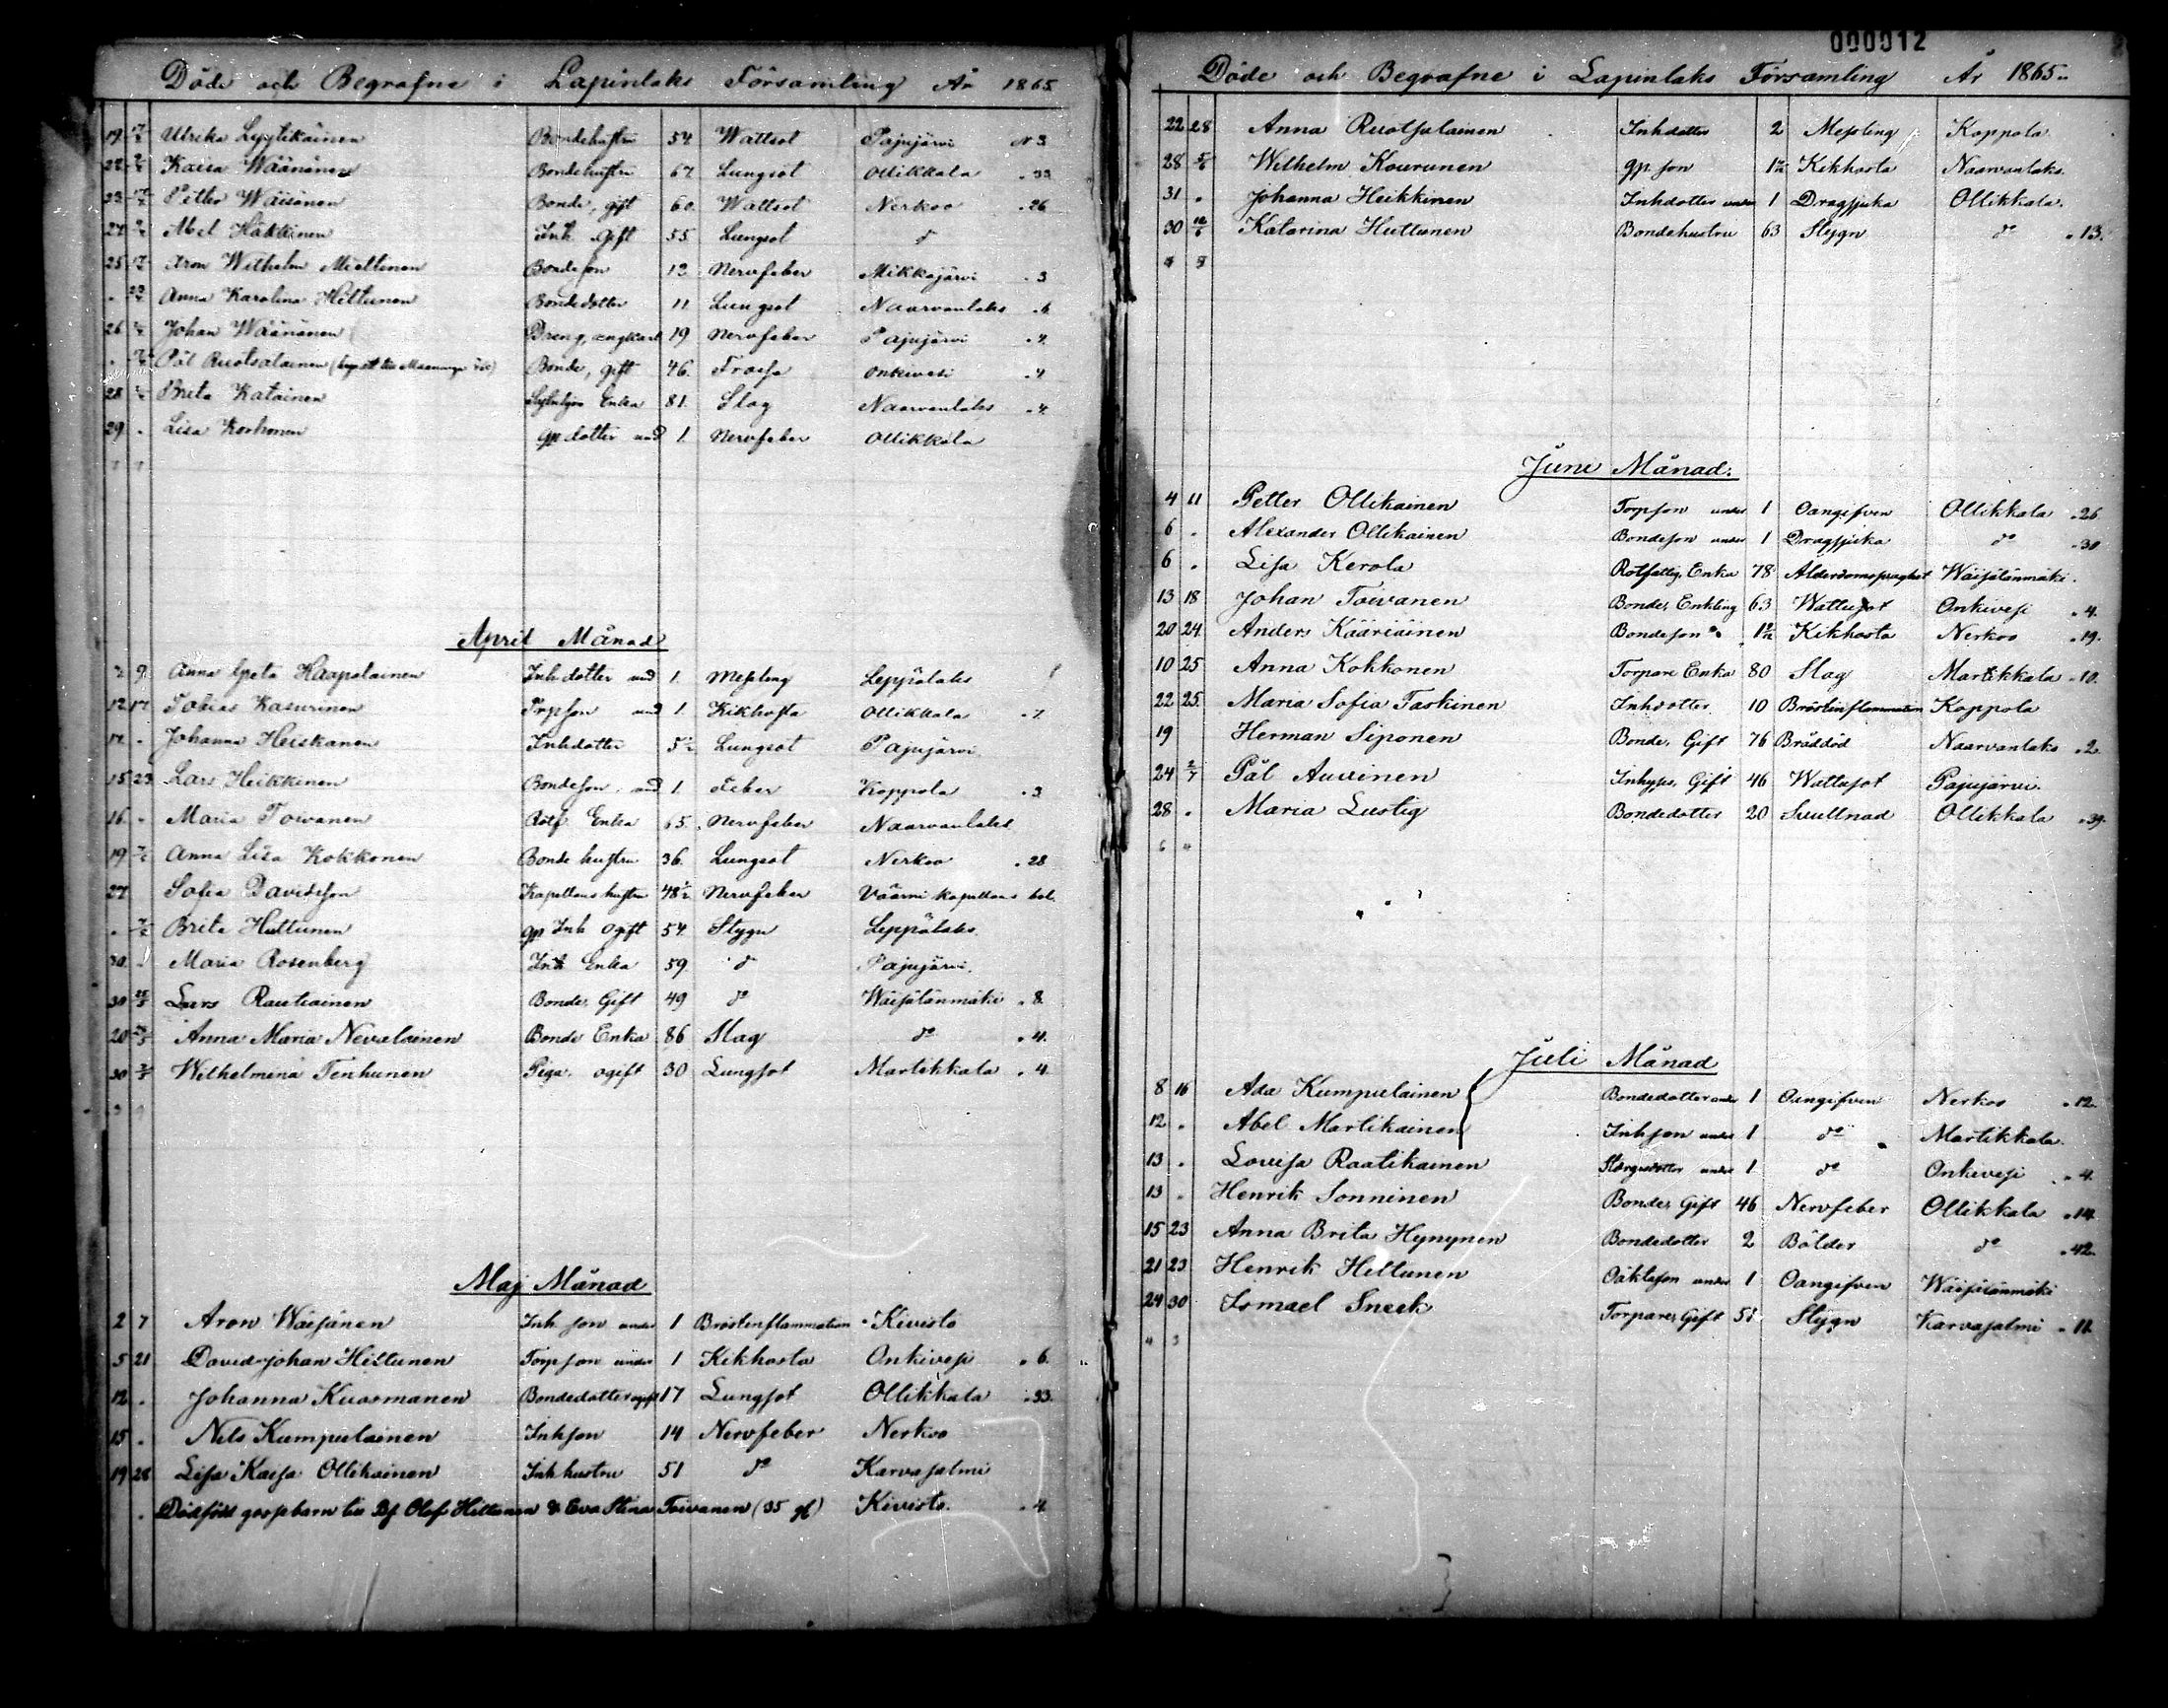 Döde och Begrafne i Lapinlaks Församling År 1865
19 Ulrika Lyytikäinen Bondehustru 54 Wattsot Pajujärvi N 3
22 Kaisa Wäänänen Bondehustru 67 Lungsot Ollikkala " 33
23 Petter Wäisänen Bonde, gift 60 Wattsot Nerkoo " 26
27 Abel Häkkinen Inh. Gift 55 Lungsot do
25 Aron Wilhelm Miettinen Bondeson 12 Nervfeber Mikkajärvi " 3
" Anna Karolina Hiltunen Bondedotter 11 Lungsot Naarvanlaks " 6
26 Johan Wäänänen Dreng, ungkarl 19 Nervfeber Pajujärvi " 4
" Pål Ruotsalainen Bonde, gift 46 Frossa Onkivesi " 4
28 Brita Katainen Enka 81 Slag Naarvanlaks " 4
29 " Lisa Korhonen gp dotter und 1 Nervfeber Ollikkala
April Månad
2 9 Anna Greta Haapalainen Inhdotter und 1 Messling Leppälaks
12 17 Tobias Kasurinen Trpson und 1 Kikhosta Ollikkala " 7
14 " Johanna Heiskanen Inhdotter 5 1/2 Lungsot Pajujärvi
15 23 Lars Heikkinen Bondeson und 1 Feber Koppola " 3
16 " Maria Toivanen Rotf. Enka 65 Nervfeber Naarvanlaks
19 Anna Lisa Kokkonen Bonde hustru 36 Lungsot Nerkoo " 28
27 Sofia Davidsson Kapellans hustru 48 1/2 Nervfeber Väärni kapellans bol.
" Brita Huttunen gp Inh ogift 54 Stygn Leppälaks
30 " Maria Rosenberg Inh Enka 59 do Pajujärvi
30 Lars Rautiainen Bonde, Gift 49 do Wäisälänmäki " 8
20 Anna Maria Nevalainen Bonde Enka 86 Slag do " 4
30 Wilhelmina Tenhunen Piga, ogift 30 Lungsot Martikkala " 4
Maj Månad
2 7 Aron Wäisänen Inh son under 1 Bröstinflammation Kivistö
5 21 David Johan Hiltunen Torpson under 1 Kikhosta Onkivesi " 6
12 " Johanna Kuosmanen Bondedotter ogift 17 Lungsot Ollikkala " 33
15 " Nils Kumpulainen Inhson 14 Nervfeber Nerkoo
19 28 Lisa Kaisa Ollikainen Inhhustru 51 do Karvasalmi
" Dödfödt gossebarn till Bf Olof Hiltunen & Eva Stina Toivanen (35 gl) Kivistö " 4
000012
Döde och Begrafne i Lapinlaks Församling År 1865
22 28 Anna Ruotsalainen Inhdotter 2 Messling Koppola
28 5/6 Wilhelm Kourunen gp. son Kikhosta Naarvanlaks
31 " Johanna Heikkinen Inhdotter under 1 Dragsjuka Ollikkala
30 Katarina Huttunen Bondehustru 63 Stygn do " 13
Juni Månad.
4 11 Petter Ollikainen Torpson under 1 Oangifven Ollikkala " 26
6 " Alexander Ollikainen Bondeson under 1 Dragsjuka do " 30
6 " Lisa Kerola Rotfattig, Enka 78 Alderdomsspraghet Wäisälänmäki
13 18 Johan Toivanen Bonde, Enkling 63 Wattusot Onkivesi " 4
20 24 Anders Kääriäinen Bondeson Kikhosta Nerkoo " 19
10 25 Anna Kokkonen Torpare Enka 80 Slag Martikkala " 10
22 25 Maria Sofia Taskinen Inhdotter 10 Bröstinflammation Koppola
19 Herman Siponen Bonde, Gift 76 Bråddöd Naarvanlaks " 2
24 2/7 Pål Auvinen Inhyses, Gift 46 Wattusot Pajujärvi
28 " Maria Lustig Bondedotter 20 Svullnad Ollikkala " 39
Juli Månad
8 16 Ada Kumpulainen Bondedotter under 1 Oangifven Nerkoo " 12
12 " Abel Martikainen Inhson under 1 do Martikkala
13 " Lovisa Raatikainen under 1 do Onkivesi " 4
13 " Henrik Sonninen Bonde, Gift 46 Nervfeber Ollikkala " 14
15 23 Anna Brita Hynynen Bondedotter 2 Bölder do " 42
21 23 Henrik Hiltunen Oäktason under 1 Oangifven Wäisälänmäki
24 30 Ismael Sneck Torpare, Gift 51 Stygn Karvasalmi " 11